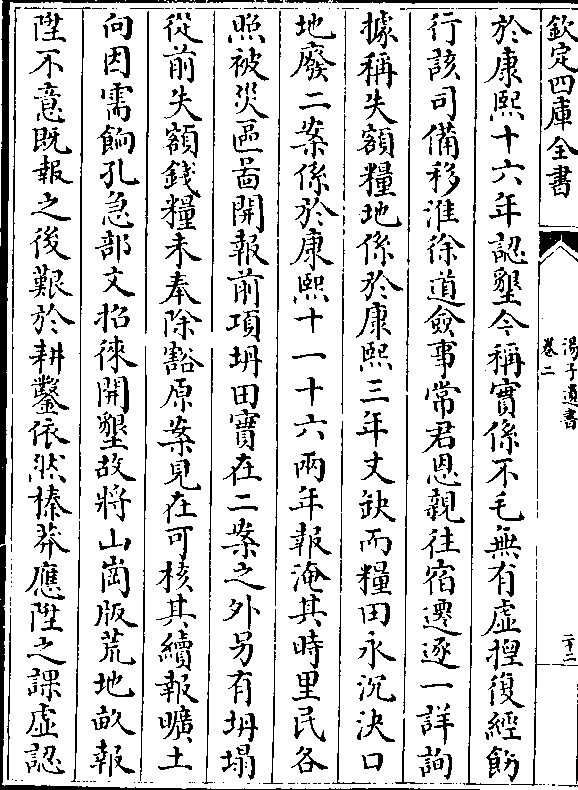 欽定四庫全書
湯子遺書
卷二
二十二
於康熙十六年認墾今稱實係不毛無有虛捏復經飭
行該司備移淮徐道僉事常君恩親往宿遷逐一詳詢
據稱失額糧地係於康熙三年丈缺而糧田永沉決口
地廢二案係於康熙十一十六兩年報淹其時里民各
照被災區啚開報前項坍田實在二案之外另有坍塌
從前失額錢糧未奉除豁原案見在可核其續報曠土
向因需餉孔急部文招徠開墾故將山崗版荒地畝報
陞不意既報之後艱於耕鑿依然榛莽應陞之課虛認